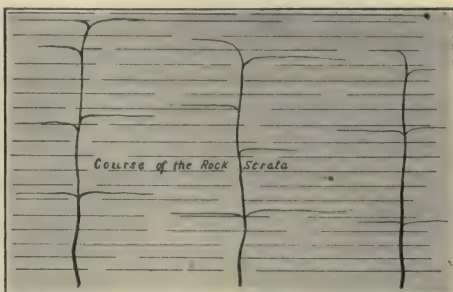 Course of the Rock Strata